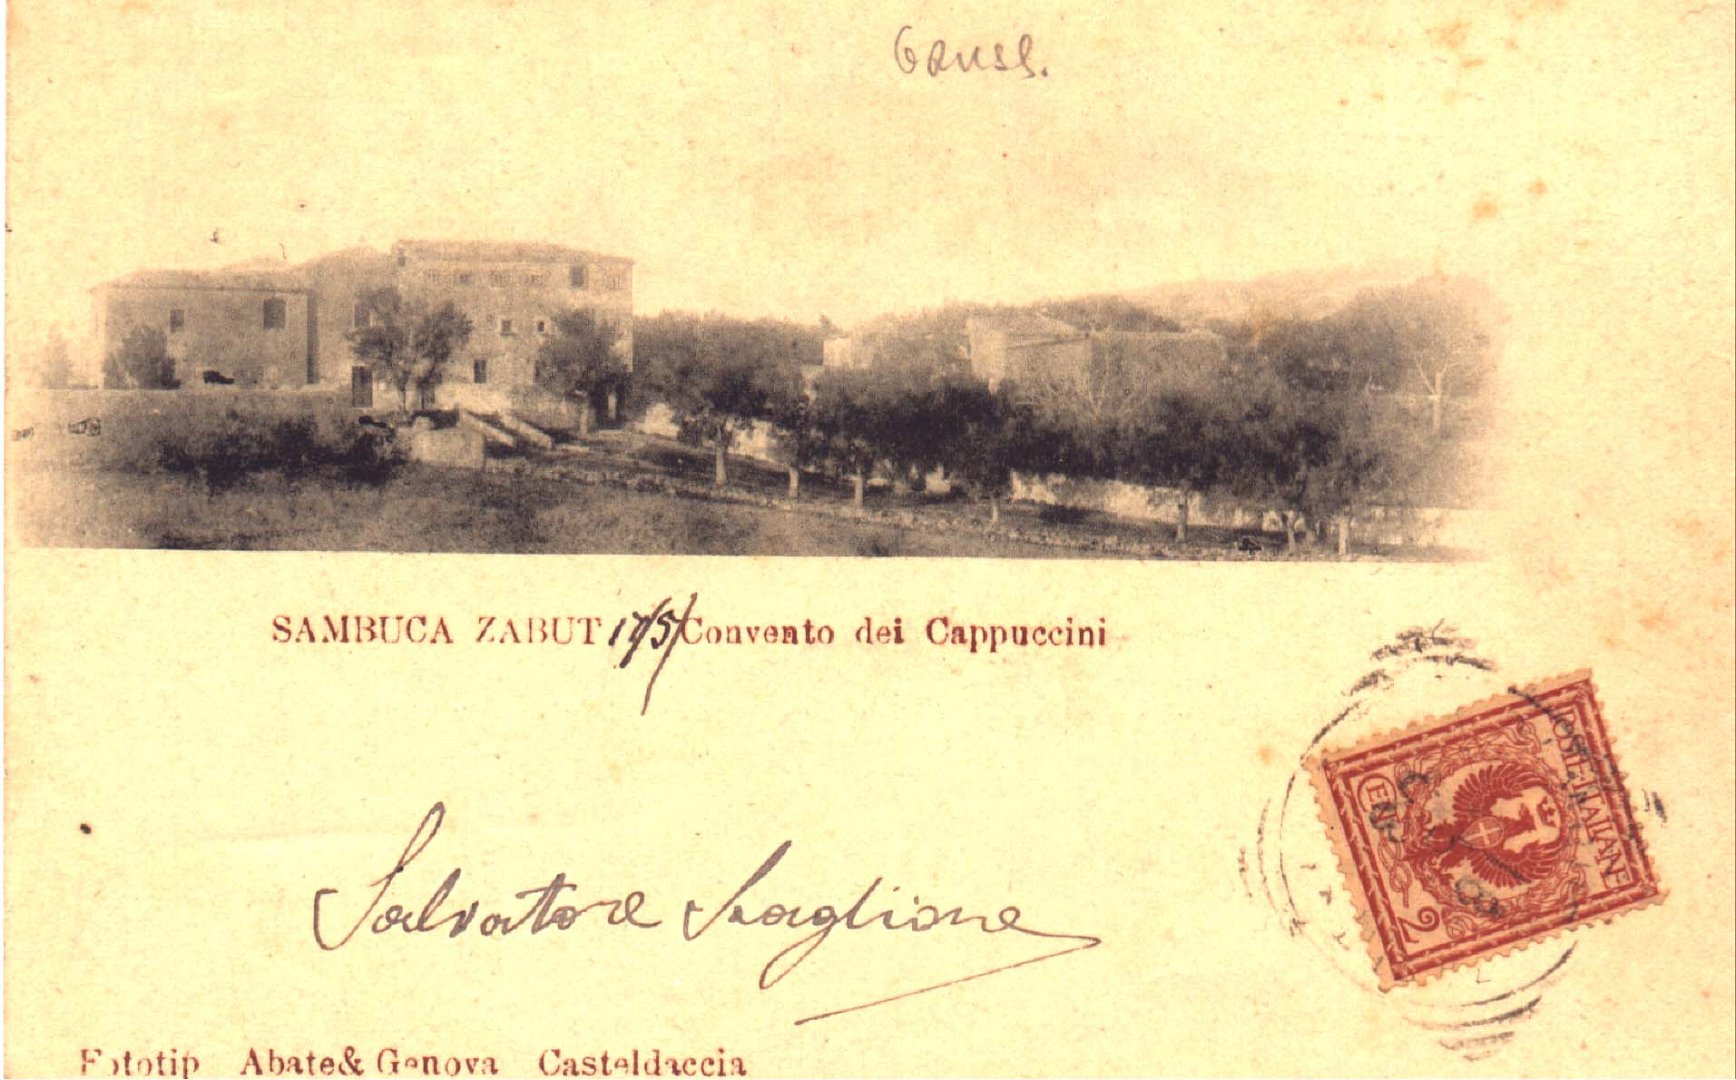 SAMBUCA ZABUT 17/5/ Convento dei Cappuccini
POSTE ITALIANE
CENT
2
Salvatore Scaglione
Fototip Abate & Genova Casteldaccia